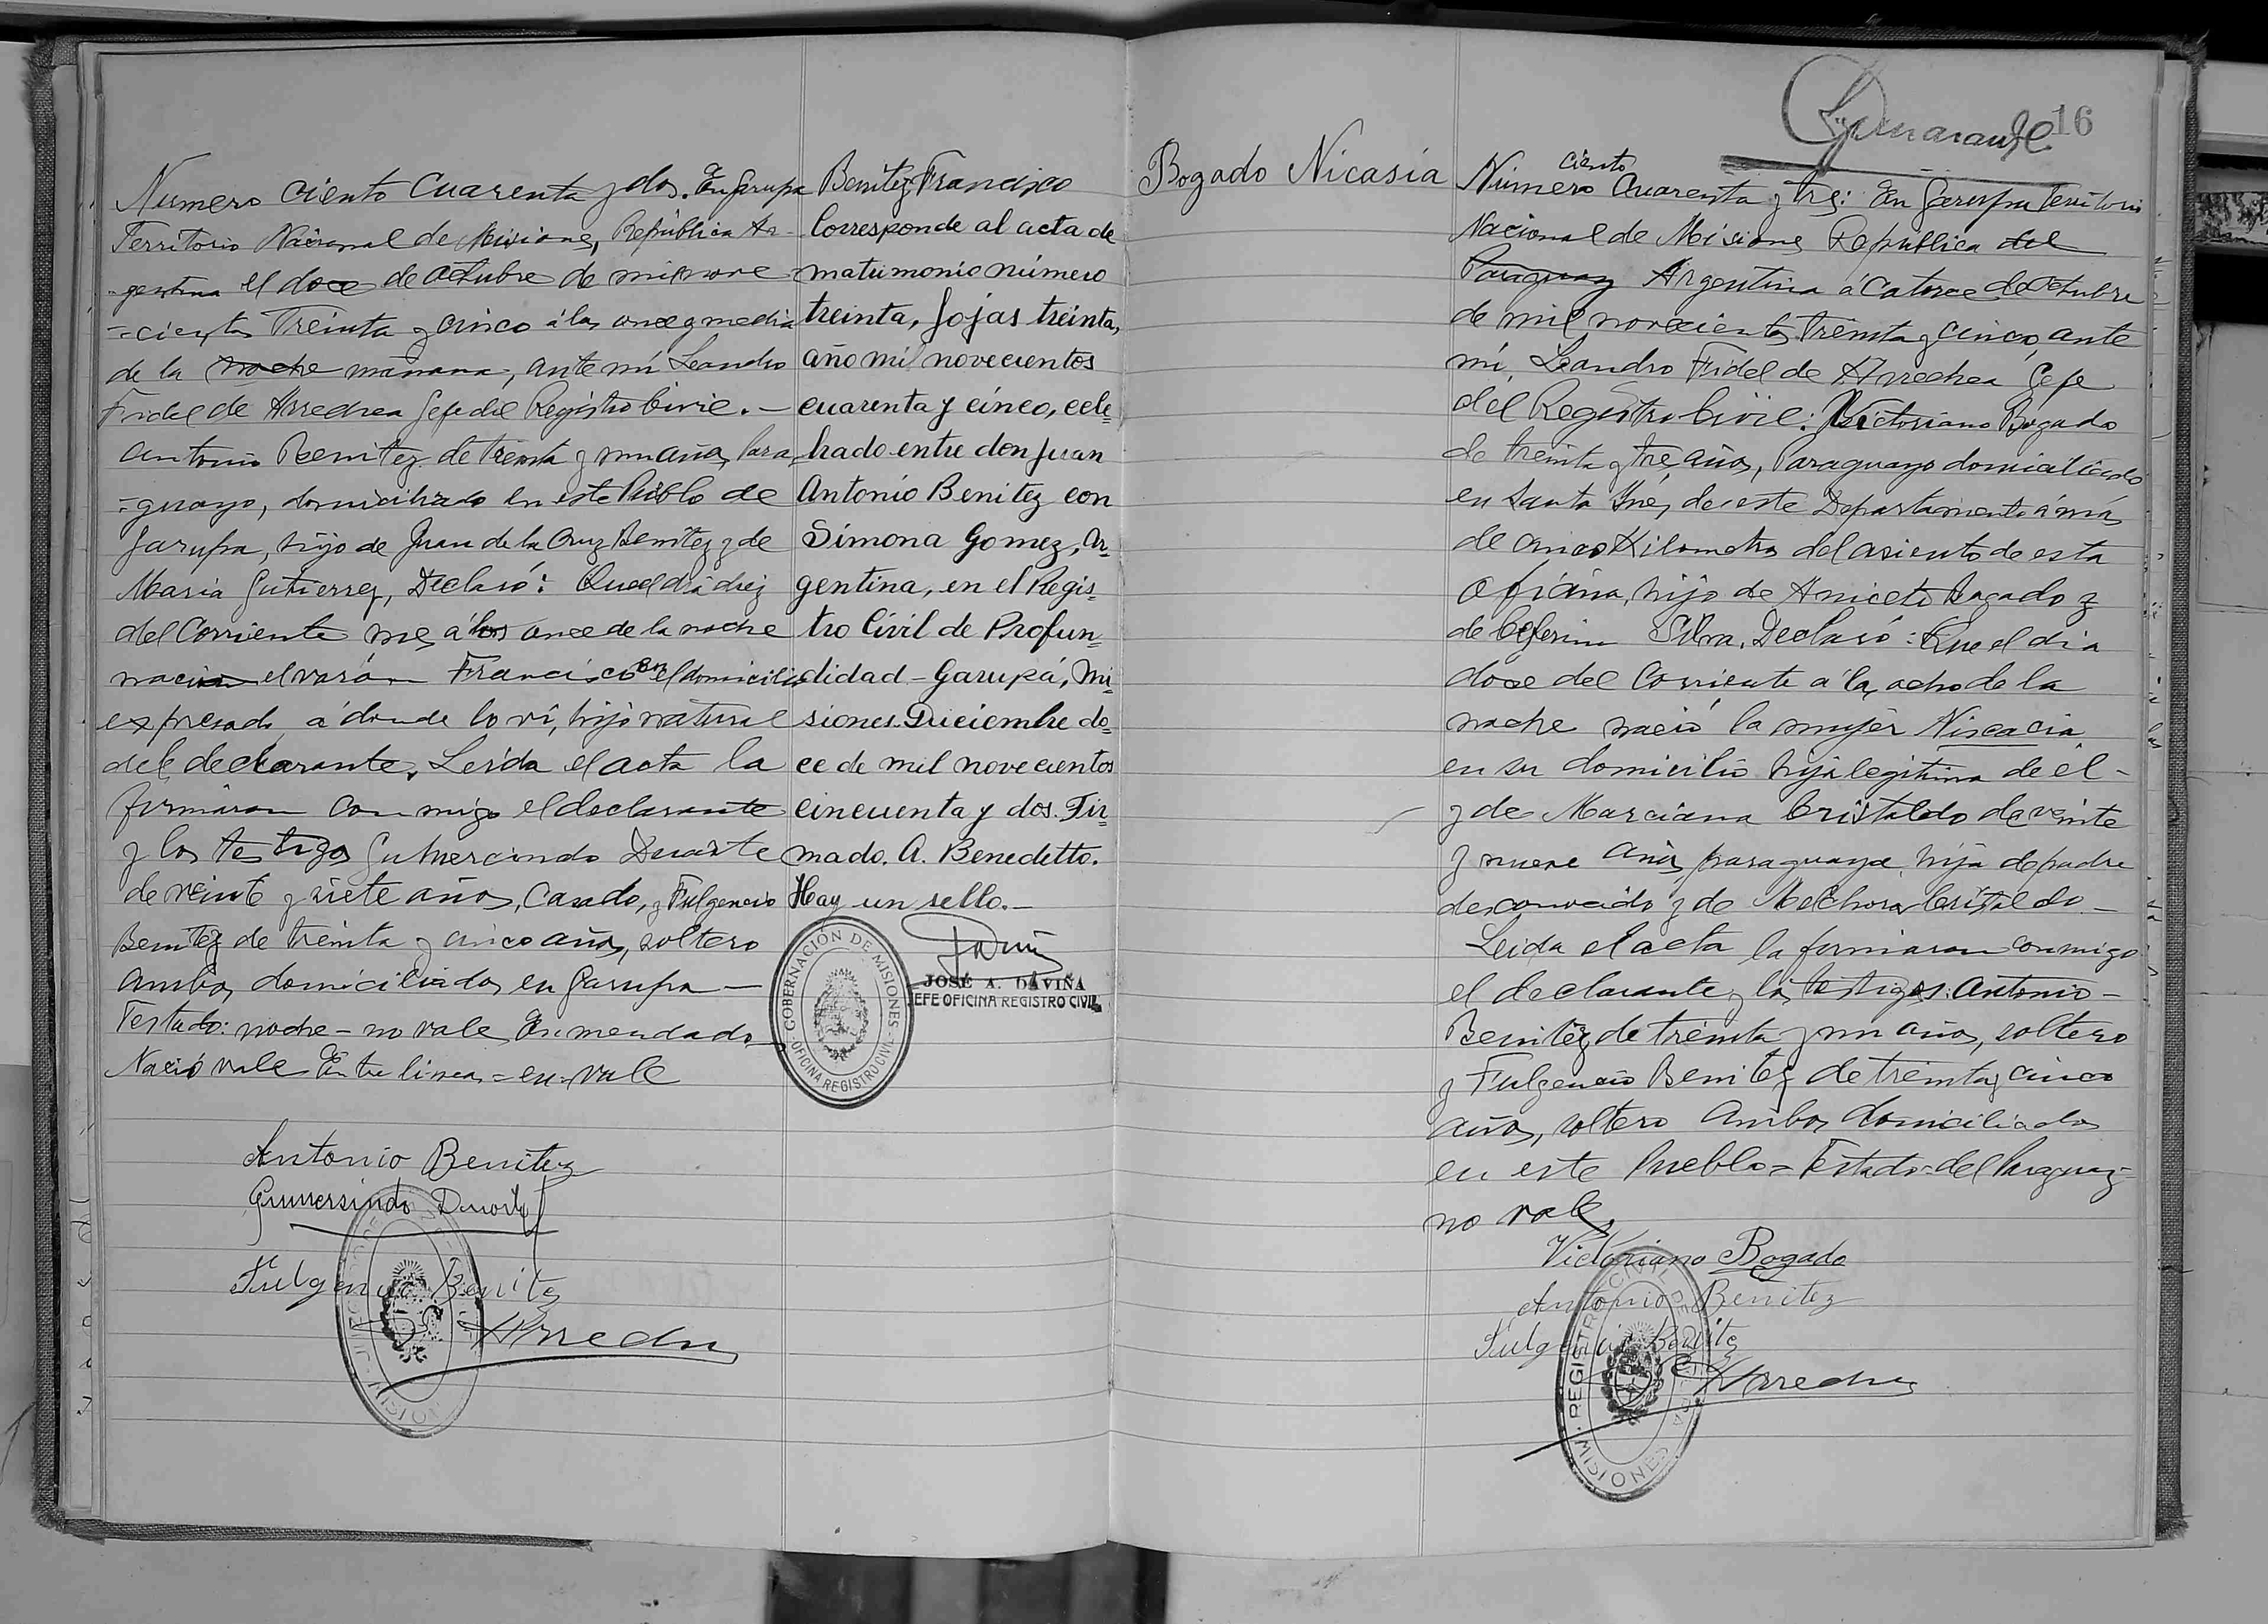 Numero ciento Cuarenta y dos. En Garupa
Territorio Nacional de Misiones, República Ar-
-gentina el doce de octubre de mil nove
=cientos Treinta y cinco á las once y media
de la noche mañana, ante mi Leandro
Fidel de Arrechea Gefe del Registro Civil.-
Antonio Benitez de treinta y un años, Para
=guayo, domiciliado en este Pueblo de
Garupa, hijo de Juan de la Cruz Benitez y de
Maria Gutierrez, Declaró: Que el dia diez
del Corriente mes á las once de la noche
nació el varón Francisco en el domicilio
expresado á donde lo ví, hijo natural
del declarante. Leida el acta la
firmaron conmigo el declarante
y los testigos Gumercindo Duarte
de veinte y siete años, Casado, y Fulgencio
Benitez de treinta y cinco años, soltero
Ambos domiciliados en Garupa —
Testado: noche - no vale Enmendado
Nació vale Entre lineas = en = vale
Antonio Benitez
Gumersindo Duarte
Fulgencio Benitez
Arrechea
Benitez Francisco
Corresponde al acta de
matrimonio número
treinta, fojas treinta,
año mil novecientos
cuarenta y cinco, cele=
brado entre don Juan
Antonio Benitez con
Simona Gomez, Ar=
gentina, en el Regis=
tro Civil de Profun=
didad - Garupá, Mi=
siones. Diciembre do=
ce de mil novecientos
cincuenta y dos. Fir=
mado. A. Benedetto.
Hay un sello.-
JOSÉ A. DAVIÑA
JEFE OFICINA REGISTRO CIVIL
GOBERNACIÓN DE MISIONES
OFICINA REGISTRO CIVIL
16
Bogado Nicasia
Número ciento Cuarenta y tres: En Garupa Territorio
Nacional de Misiones República del
Paraguay Argentina á Catorce de Octubre
de mil novecientos treinta y cinco, ante
mi, Leandro Fidel de Arrechea Gefe
del Registro Civil: Victoriano Bogado
de treinta y tres años, Paraguayo domiciliado
en Santa Inés, de este Departamento á más
de cinco Kilometros del asiento de esta
Oficina, hijo de Aniceto Bogado y
de Ceferina Silva, Declaró: Que el dia
doce del Corriente á las ocho de la
noche nació la mujer Niscacia
en su domicilio hija legitima de el-
y de Marciana Cristaldo de veinte
y nueve años paraguaya, hija de padre
desconocido y de Melchora Cristaldo —
Leida el acta la firmaron conmigo
el declarante y los testigos: Antonio-
Benitez de treinta y un años, soltero
y Fulgencio Benitez de treinta y cinco
años, soltero Ambos domiciliados
en este Pueblo = Testado = del Paraguay=
no vale.
Victoriano Bogado
Antonio Benitez
Fulgencio Benitez
Arrechea
REGISTRO CIVIL
MISIONES